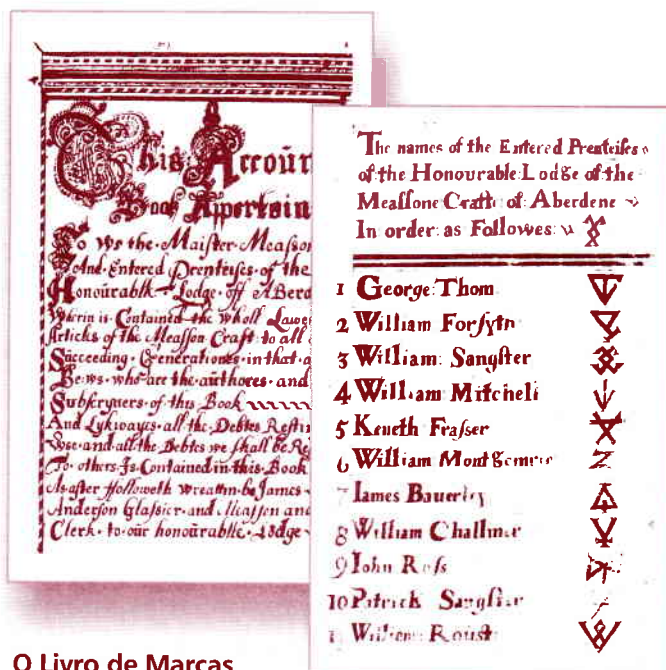 This Accour
Book Appertein
To ws the Maister Meason
And Entered Prenteises of the
Honourable Lodge off ABerd
Wherin is Contained the Wholl Lawes
Articles of the Measson Craft to all
Succeeding Generationes in that a
Be ws who are the authores and
Subscryuers of this Book
And Lykwayes all the Debtes Restin
Wse and all the Debtes we shall be
To others Is Contained in this Book
As after Followeth wreattin be James
Anderson Glassier and Measson and
Clerk to our honourable Lodge
The names of the Entered Prenteises
of the Honourable Lodge of the
Meassone Crafte of Aberdene
In order as Followes
1 George Thom
2 William Forsyth
3 William Sangster
4 William Mitchell
5 Keneth Frasser
6 William Montgomrie
7 Iames Bauerley
8 William Challmer
9 Iohn Ross
10 Patrick Sangster
William Roust
O Livro de Marcas